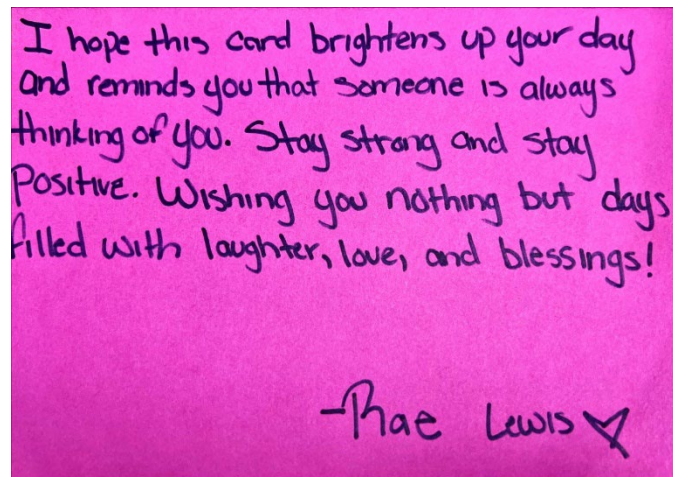 I hope this card brightens up your day
and reminds you that someone is always
thinking of you. Stay strong and stay
Positive. Wishing you nothing but days
filled with laughter, love, and blessings!
-Rae Lewis